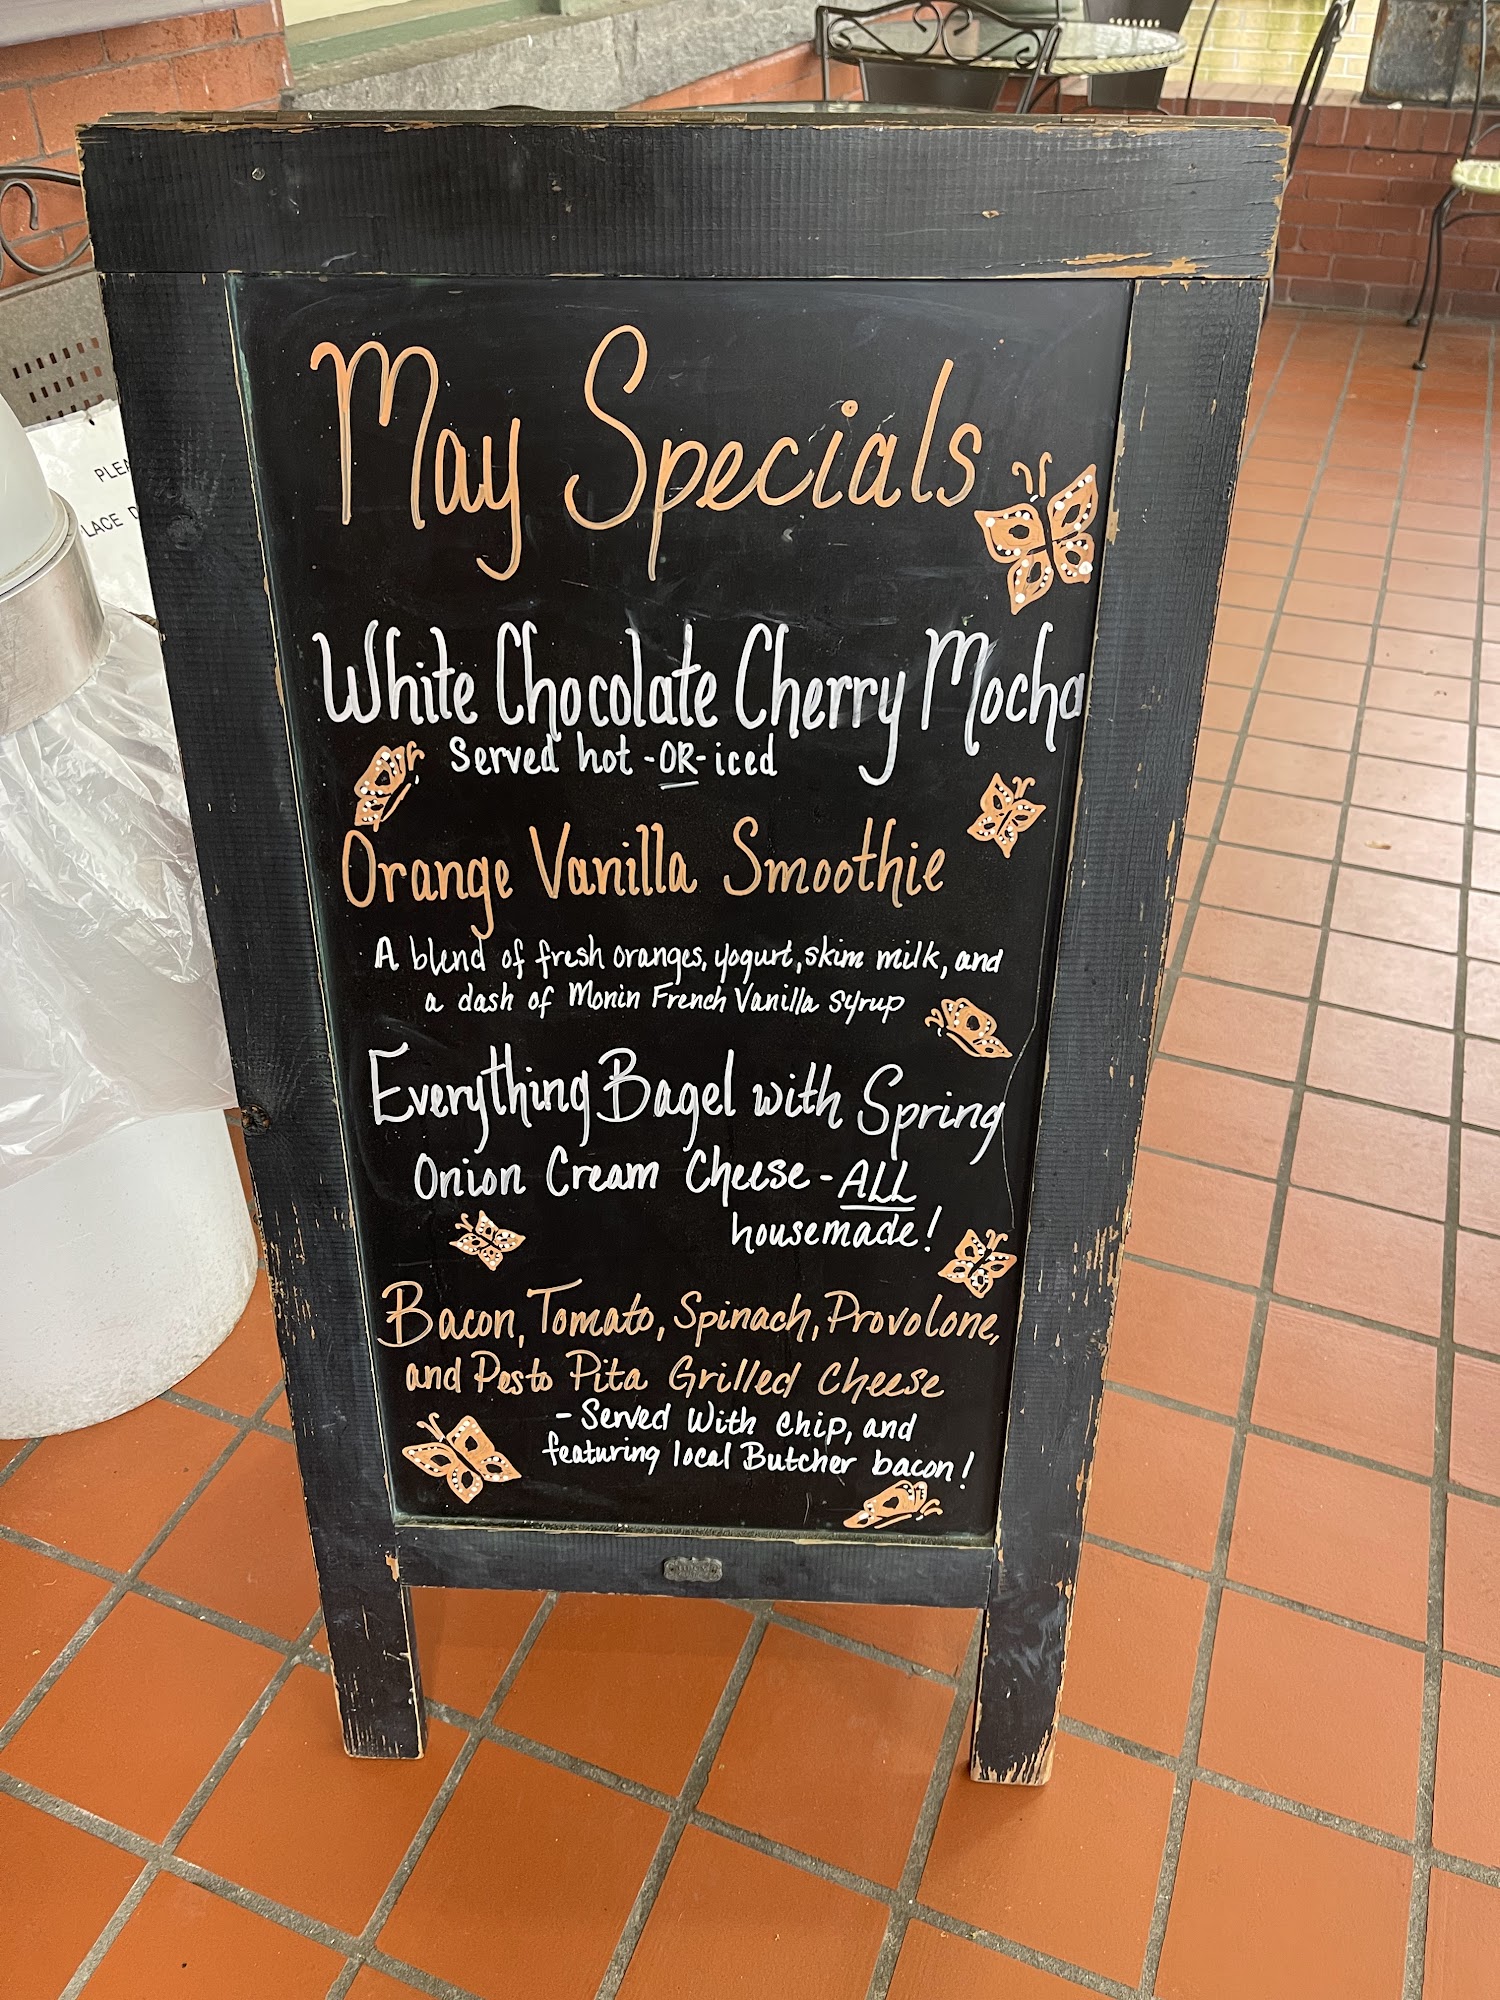 May Specials
White Chocolate Cherry Mocha
Served hot -OR- iced
Orange Vanilla Smoothie
A blend of fresh oranges, yogurt, skim milk, and
a dash of Monin French Vanilla syrup
Everything Bagel with Spring
Onion Cream Cheese - ALL
housemade!
Bacon, Tomato, Spinach, Provolone,
and Pesto Pita Grilled Cheese
- Served with chip, and
featuring local Butcher bacon!